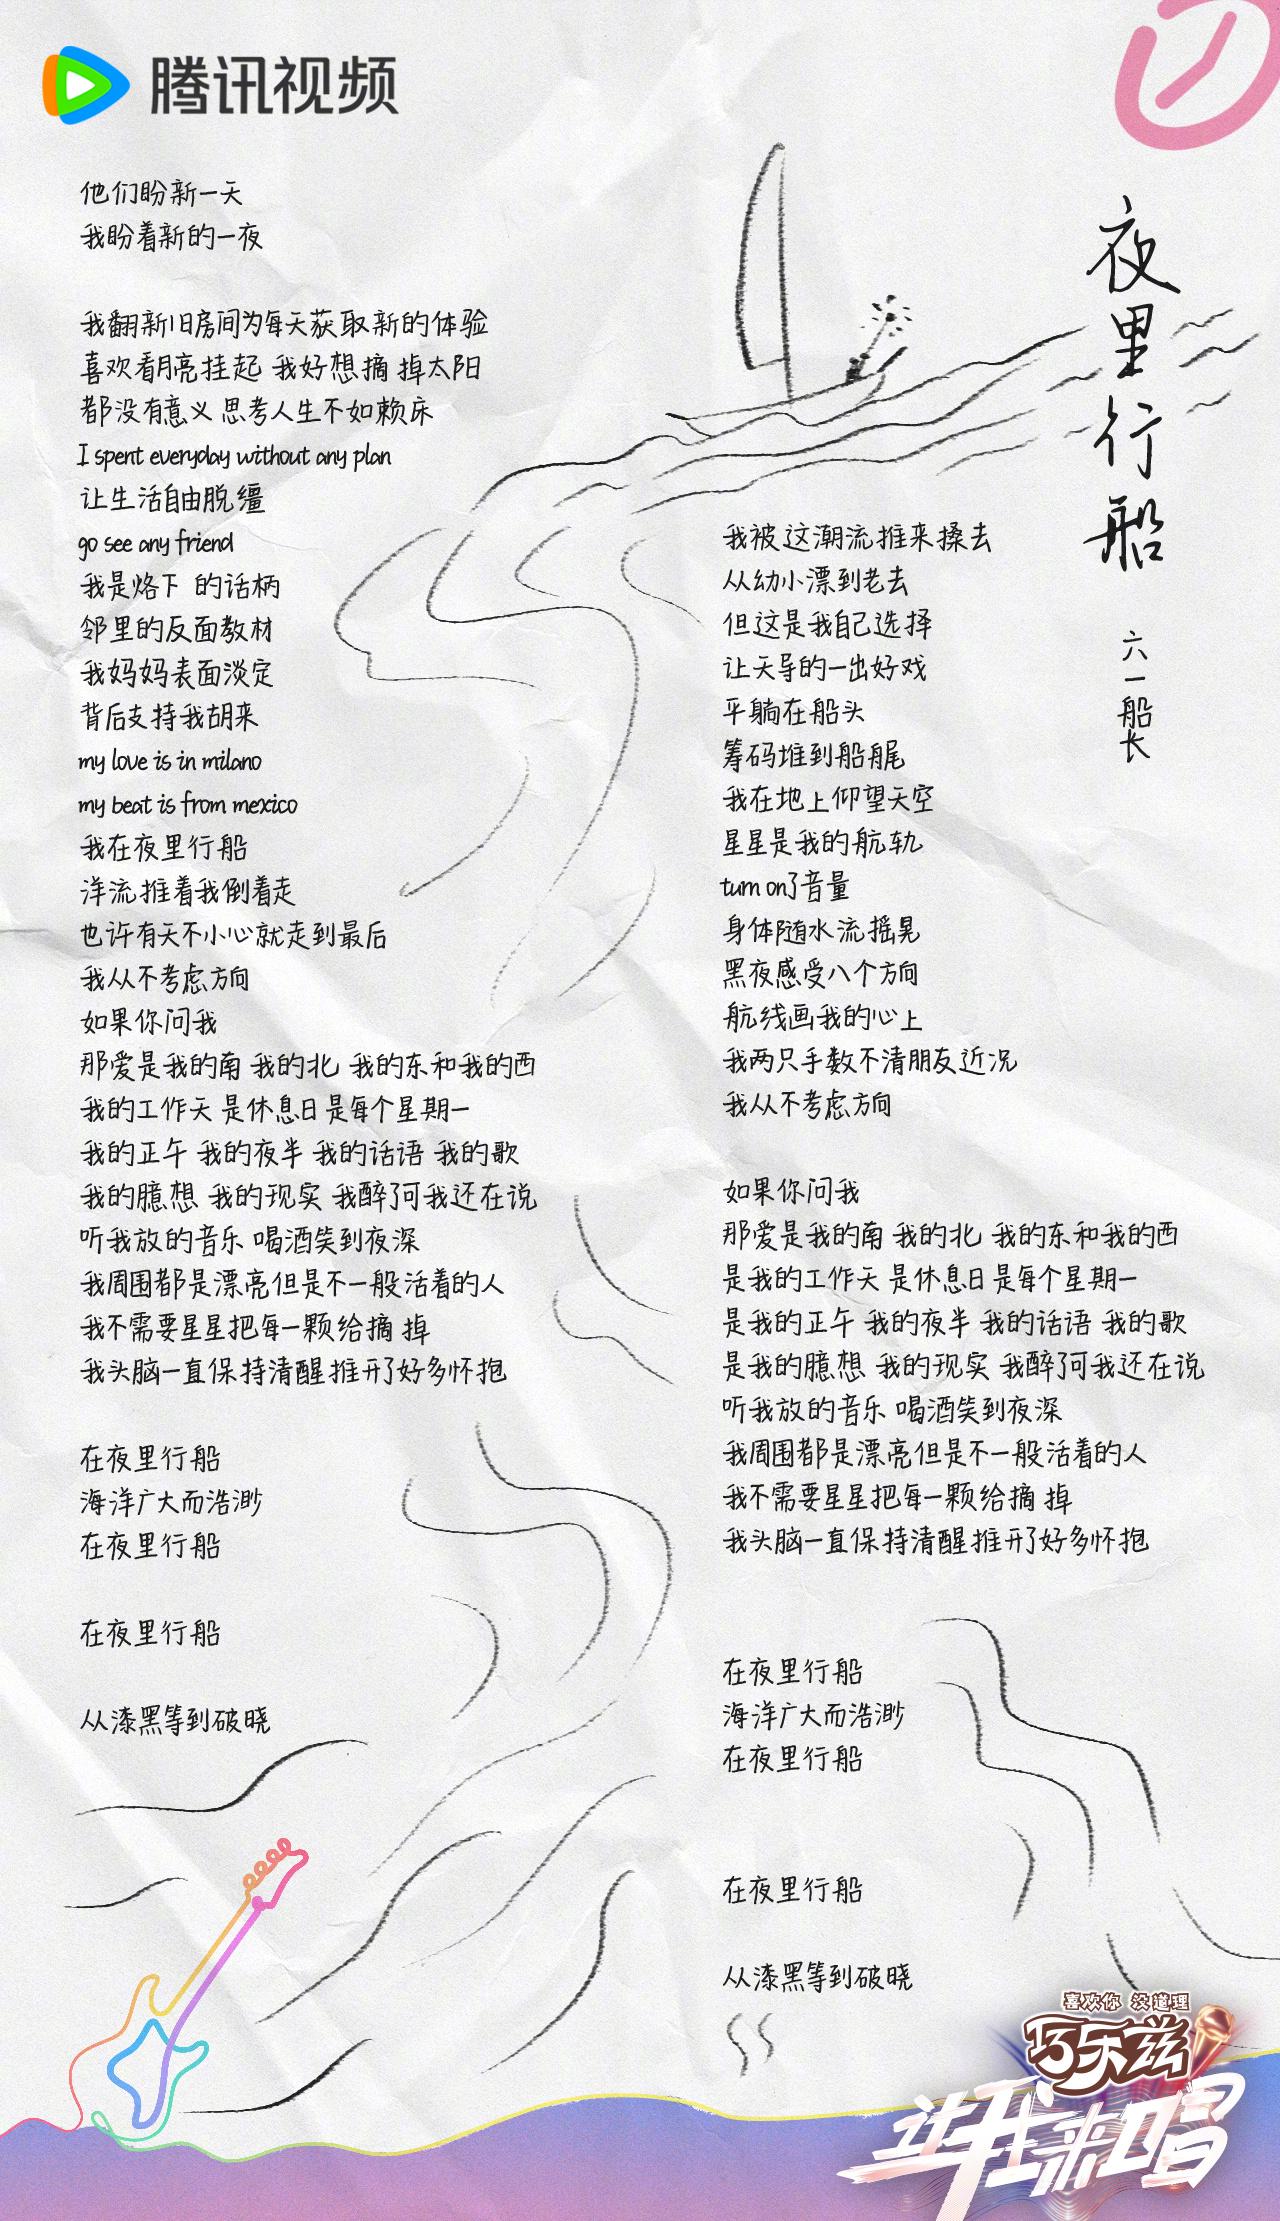 腾讯视频
夜里行船
六一船长
他们盼新一天
我盼着新的一夜
我翻新旧房间为每天获取新的体验
喜欢看月亮挂起 我好想摘掉太阳
都没有意义 思考人生不如赖床
I spent everyday without any plan
让生活自由脱缰
go see any friend
我是烙下 的话柄
邻里的反面教材
我妈妈表面淡定
背后支持我胡来
my love is in milano
my beat is from mexico
我在夜里行船
洋流推着我倒着走
也许有天不小心就走到最后
我从不考虑方向
如果你问我
那爱是我的南 我的北 我的东和我的西
我的工作天 是休息日是每个星期一
我的正午 我的夜半 我的话语 我的歌
我的臆想 我的现实 我醉了可我还在说
听我放的音乐 喝酒笑到夜深
我周围都是漂亮但是不一般活着的人
我不需要星星把每一颗给摘掉
我头脑一直保持清醒推开了好多怀抱
在夜里行船
海洋广大而浩渺
在夜里行船
在夜里行船
从漆黑等到破晓
我被这潮流推来搡去
从幼小漂到老去
但这是我自己选择
让天导的一出好戏
平躺在船头
筹码堆到船艉
我在地上仰望天空
星星是我的航轨
turn on了音量
身体随水流摇晃
黑夜感受八个方向
航线画我的心上
我两只手数不清朋友近况
我从不考虑方向
如果你问我
那爱是我的南 我的北 我的东和我的西
是我的工作天 是休息日是每个星期一
是我的正午 我的夜半 我的话语 我的歌
是我的臆想 我的现实 我醉了可我还在说
听我放的音乐 喝酒笑到夜深
我周围都是漂亮但是不一般活着的人
我不需要星星把每一颗给摘掉
我头脑一直保持清醒推开了好多怀抱
在夜里行船
海洋广大而浩渺
在夜里行船
在夜里行船
从漆黑等到破晓
喜欢你 没道理
巧乐兹
让我来唱